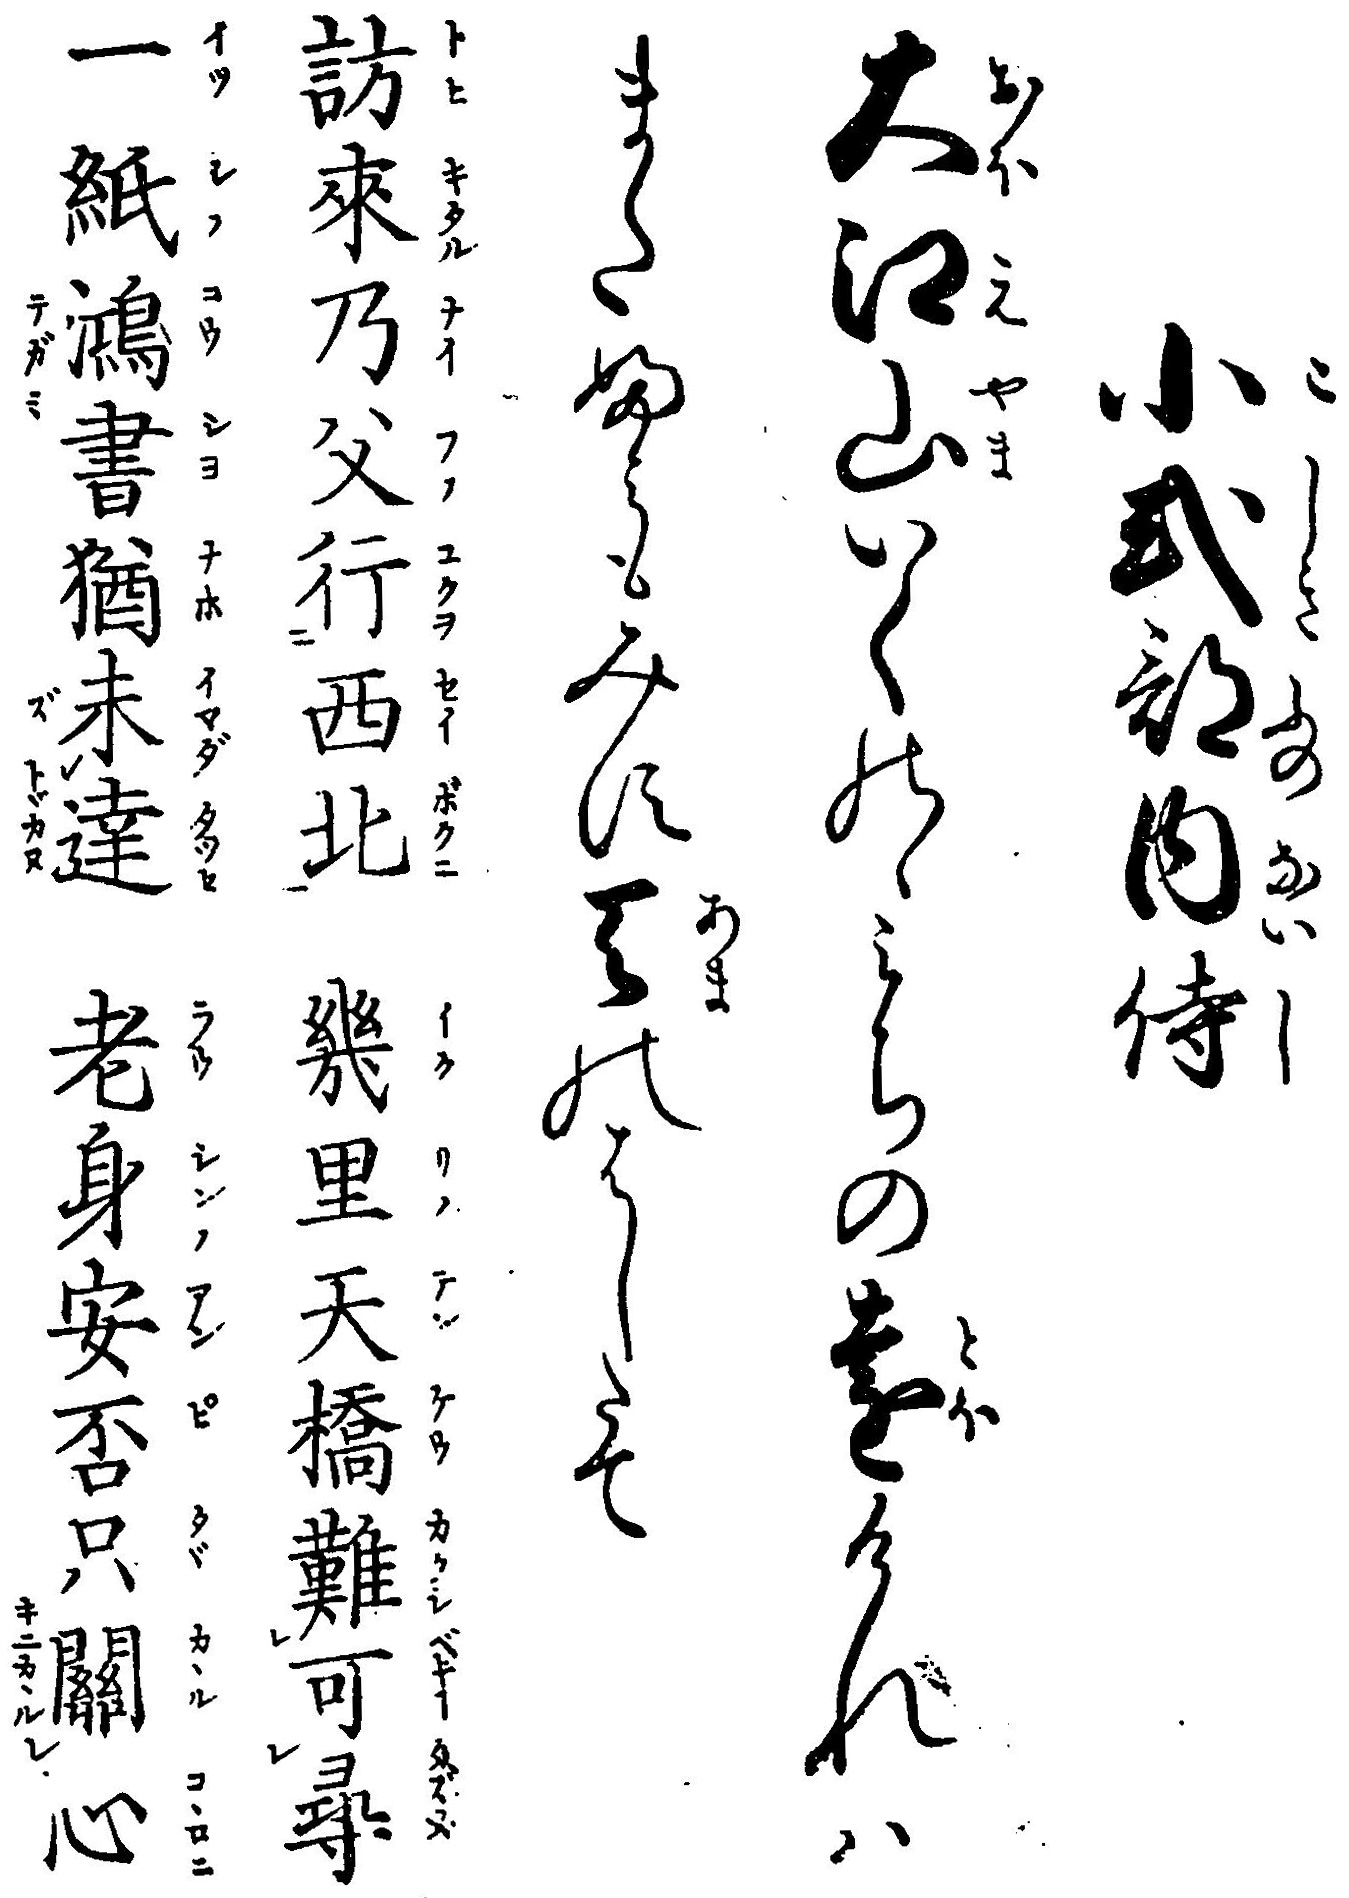 こしきぶのないし
小式部内侍
おほえやま とほ
大江山いくのゝみちの遠けれバ
あま
またふみもみす天のはしたて
トヒ キタル ナイ フノ ユクヲ セイ ボクニ イク リノ テン ケウ カタシ ベキ タズヌ
訪來乃父行二西北一 幾里天橋難レ可レ尋
イツ シノ コウ シヨ ナホ イマダ タツセ ラウ シンノ アン ピ タヾ カヽル コヽロニ
一紙鴻書猶未レ達 老身安否只關レ心
テガミ ズ トヾカヌ キニカヽル